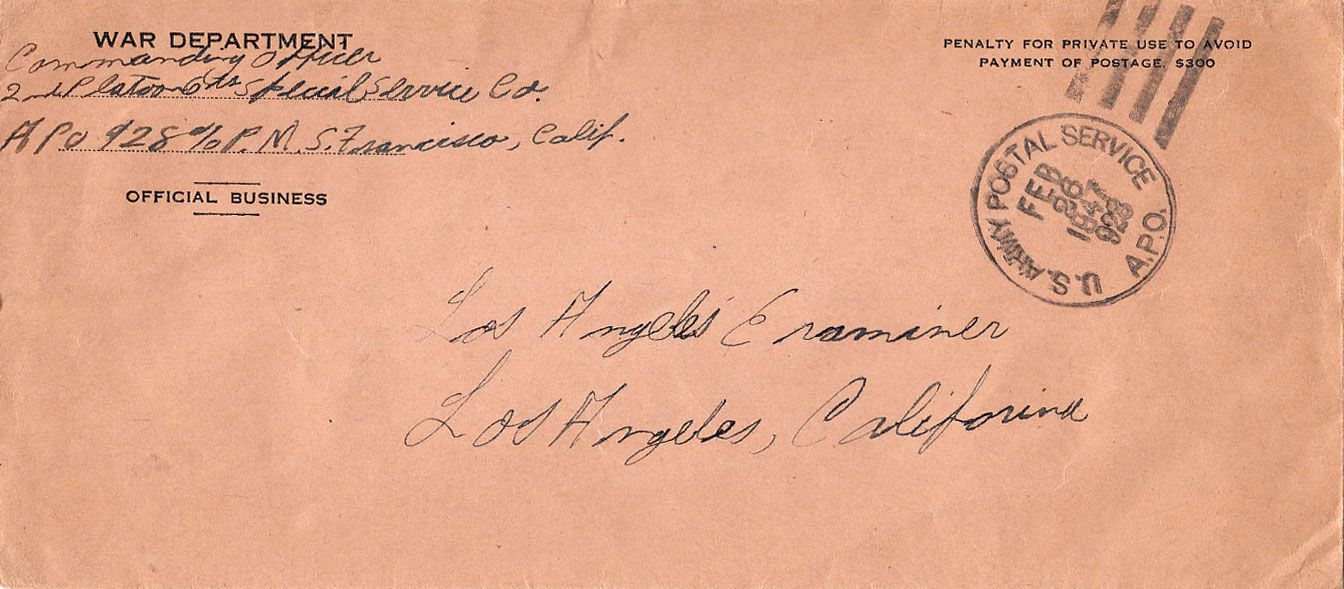 WAR DEPARTMENT
Commanding Officer
2nd Platoon 6th Special Service Co.
APO 928 c/o P.M. S. Francisco, Calif.
OFFICIAL BUSINESS
PENALTY FOR PRIVATE USE TO AVOID
PAYMENT OF POSTAGE, $300
U.S. ARMY POSTAL SERVICE
A.P.O.
FEB
26
1947
928
Los Angeles Examiner
Los Angeles, California